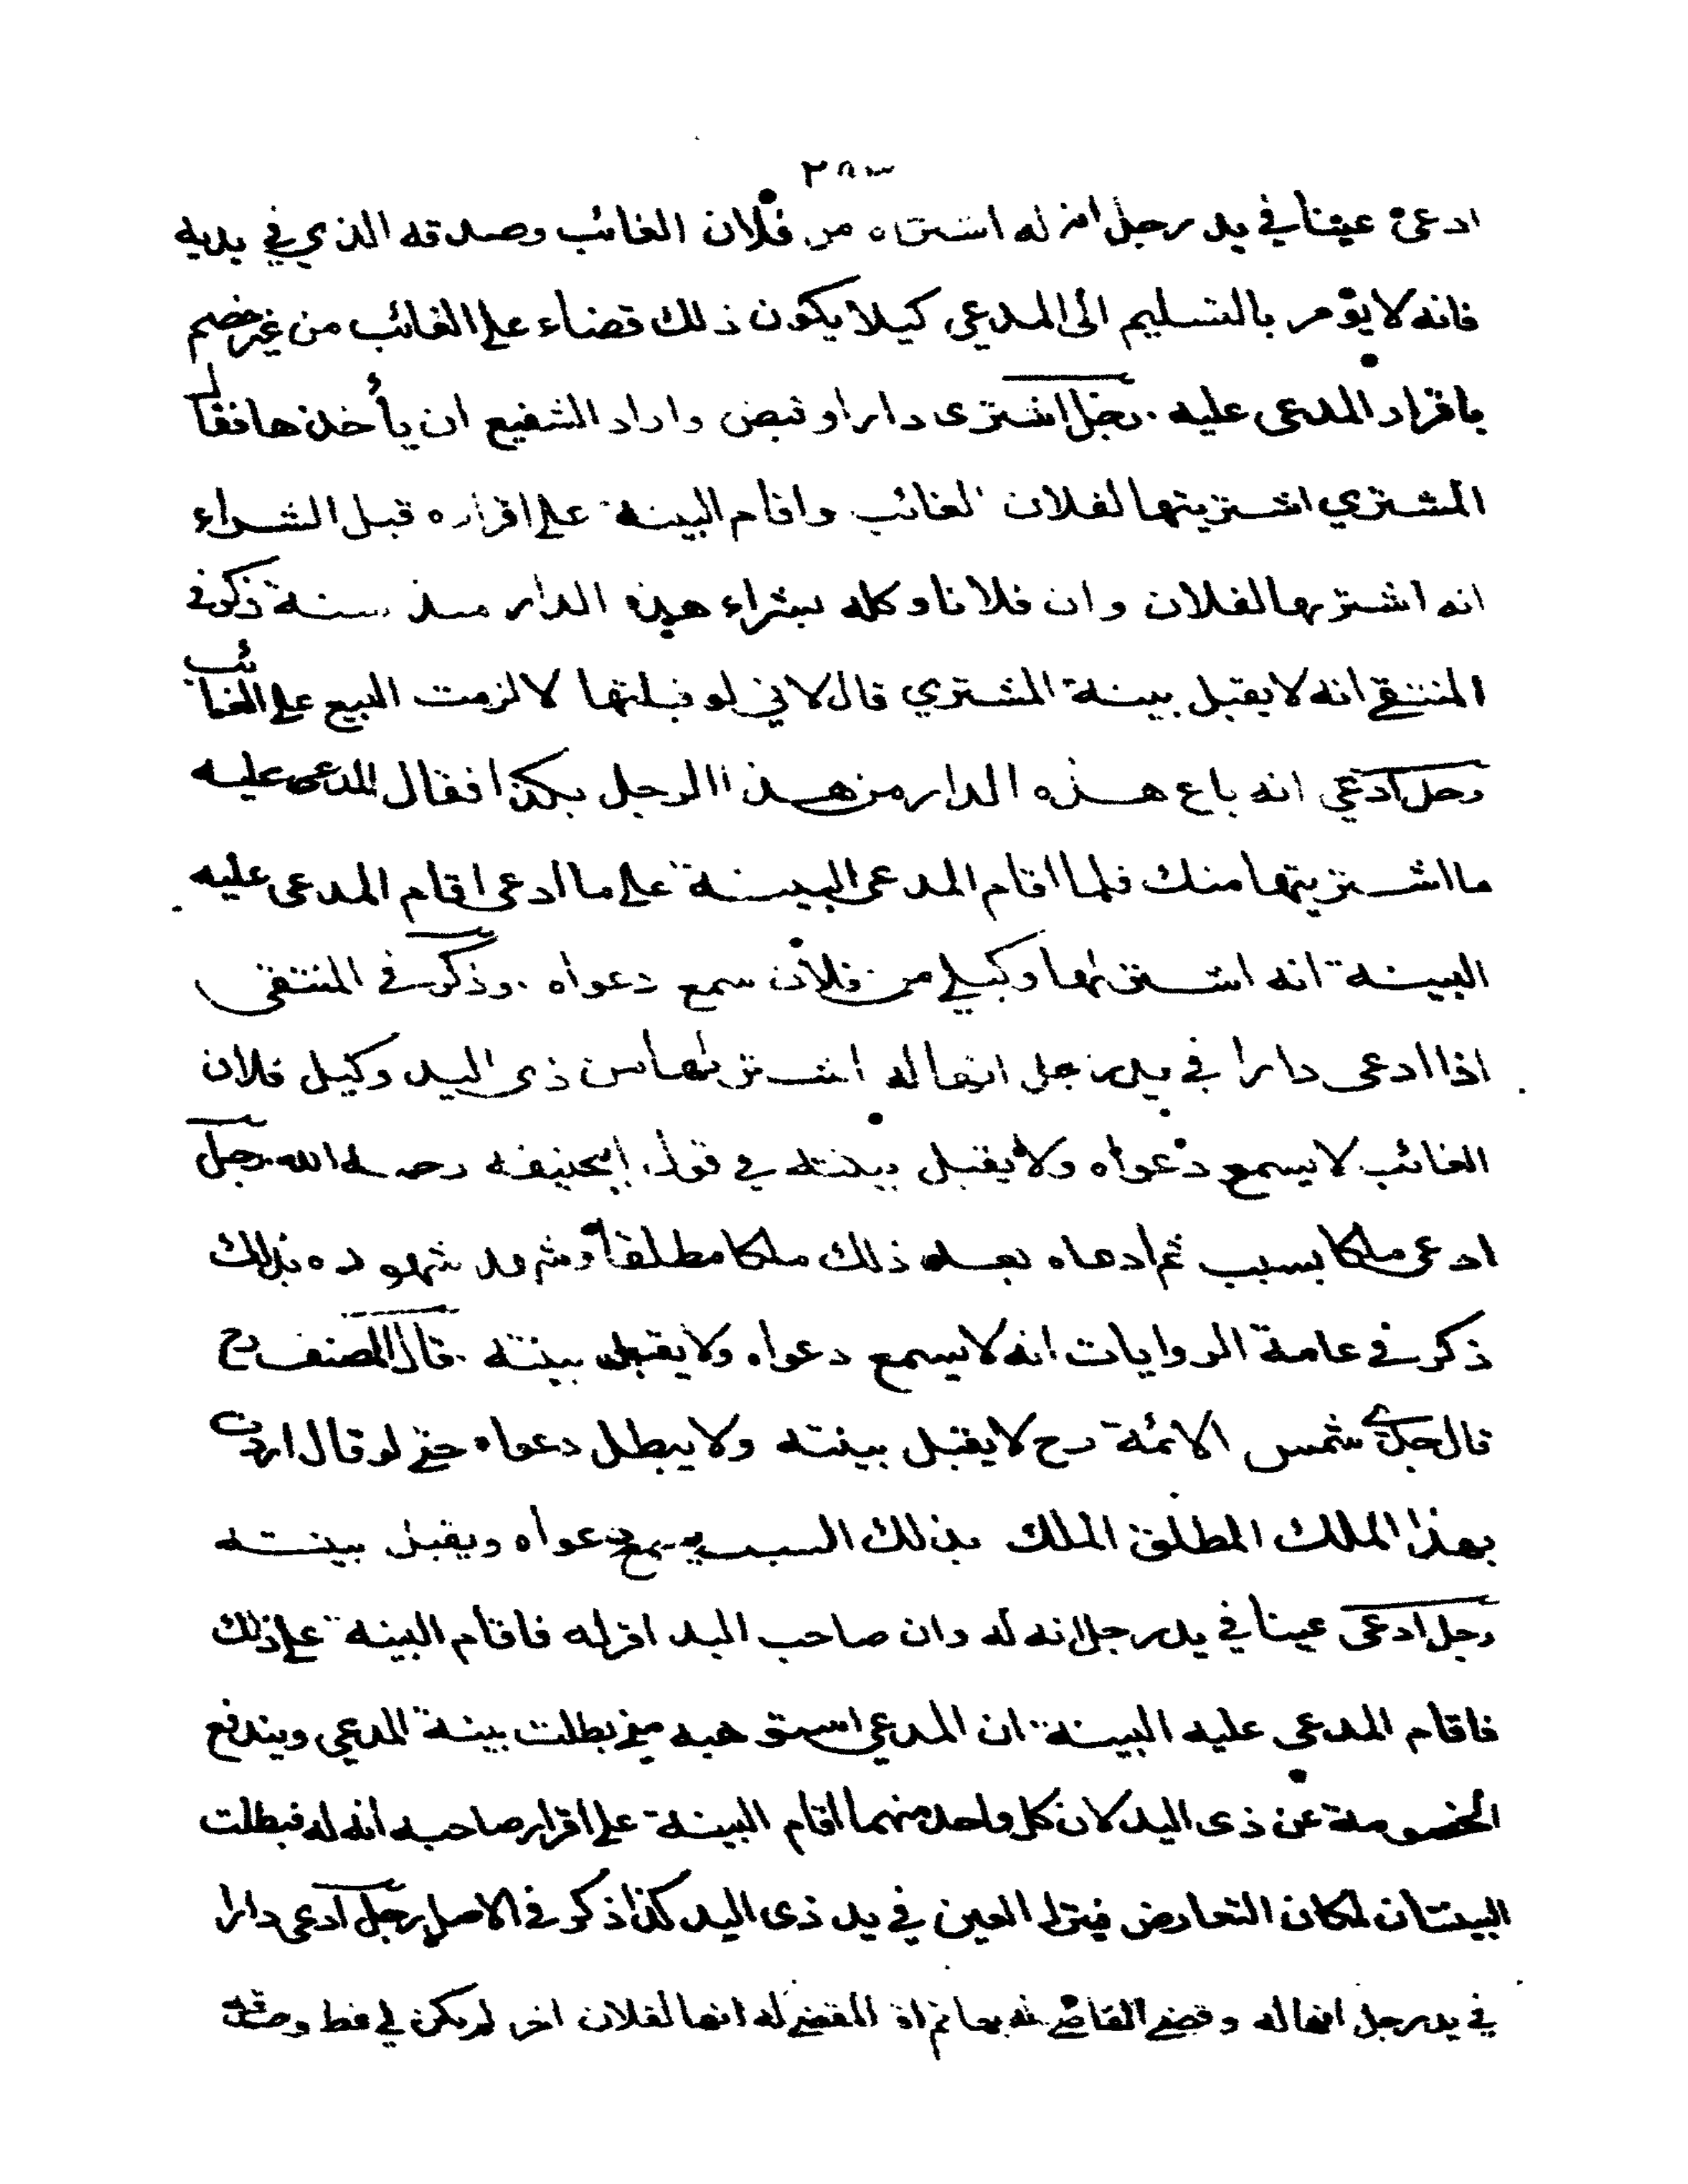 ٢٨٣
ادعى عينا في يد رجل انه له اشتراه من فلان الغائب وصدقه الذي في يديه
فانه لا يؤمر بالتسليم الى المدعي كيلا يكون ذلك قضاء على الغائب من غير خصم
باقرار المدعى عليه . رجل اشترى دارا وقبض واراد الشفيع ان يأخذها فقال
المشتري اشتريتها لفلان الغائب واقام البينة على اقراره قبل الشراء
انه اشتريها لفلان وان فلانا وكله بشراء هذه الدار منذ سنة ذكر في
المنتقى انه لا يقبل بينة المشتري قال لاني لو قبلتها لالزمت البيع على الغائب
رجل ادعى انه باع هذه الدار من هذا الرجل بكذا فقال المدعى عليه
ما اشتريتها منك فلما اقام المدعى البينة على ما ادعى اقام المدعى عليه
البينة انه اشتريها وكيلي من فلان سمع دعواه . وذكر في المنتقى
اذا ادعى دارا في يد رجل انها له اشتريها من ذى اليد وكيل فلان
الغائب لا يسمع دعواه ولا يقبل بينته في قول ابيحنيفه رحمه الله رجل
ادعى ملكا بسبب ثم ادعاه بعد ذلك ملكا مطلقا وشهد شهوده بذلك
ذكر في عامة الروايات انه لا يسمع دعواه ولا يقبل بينته . قال المصنف رح
قال جدي شمس الائمة رح لا يقبل بينته ولا يبطل دعواه حتى لو قال اردت
بهذا الملك المطلق الملك بذلك السبب يسمع دعواه ويقبل بينته
رجل ادعى عينا في يد رجل انه له وان صاحب اليد اقر له فاقام البينة على ذلك
فاقام المدعى عليه البينة ان المدعي استوهبه مني بطلت بينة المدعي ويندفع
الخصومة عن ذى اليد لان كل واحد منهما اقام البينة على اقرار صاحبه انه له فبطلت
البينتان لمكان التعارض فيترك العين في يد ذى اليد كذا ذكر في الاصل رجل ادعى دارا
في يد رجل انها له وقضى القاضي له بها ثم اقر المقضي له انها لفلان اخر لم يكن لي قط وصدقه